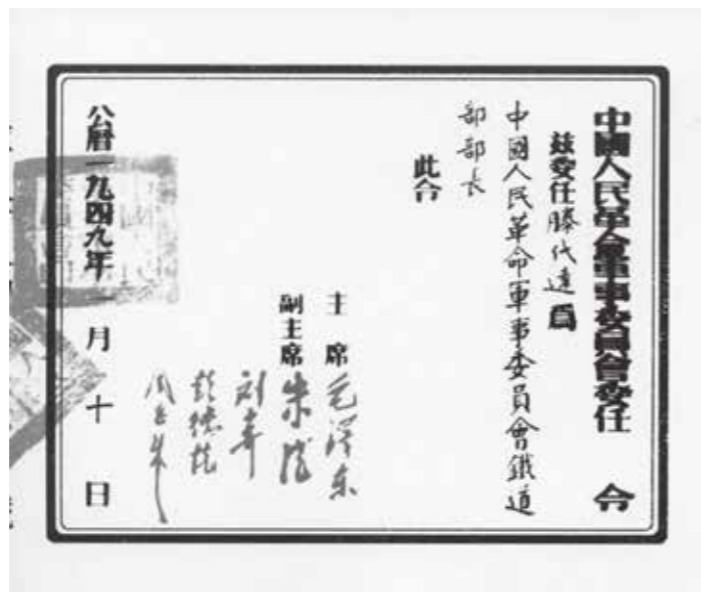 中國人民革命軍事委員會委任 令
茲委任滕代遠爲
中國人民革命軍事委員會鐵道
部部长
此令
主席 毛澤东
副主席 朱德
刘少奇
彭德怀
周恩来
公曆一九四九年一月十日